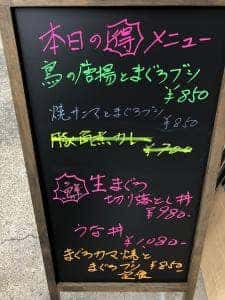 本日の得メニュー
鳥の唐揚とまぐろブシ
¥850
焼サンマとまぐろブシ
¥850
豚角煮カレー
¥700
鮮 生まぐろ
切り落とし丼
¥980-
うな丼
¥1,080-
まぐろカマ焼と
まぐろブシ ¥850
定食